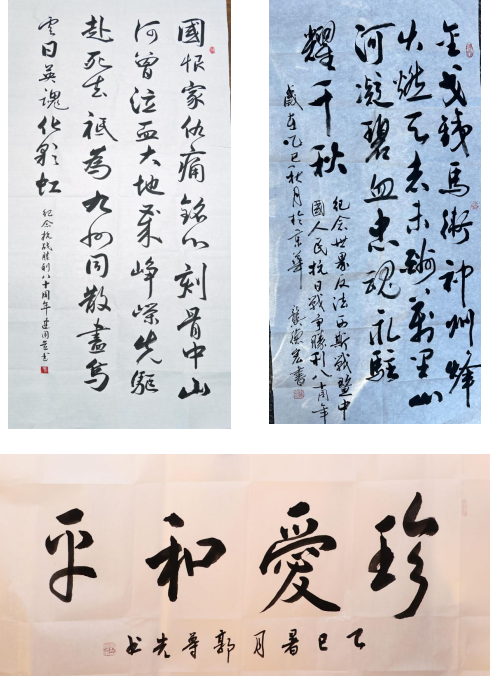 國恨家仇痛銘心刻骨中山
河曾泣血大地崢嶸先驅
赴死去祇為九州同散盡烏
雲日英魂化彩虹
紀念抗战胜利八十周年 建国书
金戈鐵馬衛神州烽
火燃天志未酬萬里山
河凝碧血忠魂永駐
耀千秋
歲在乙巳秋月於京華
紀念世界反法西斯戰暨中
國人民抗日戰爭勝利八十周年
書
珍愛和平
乙巳暑月郭尊光书